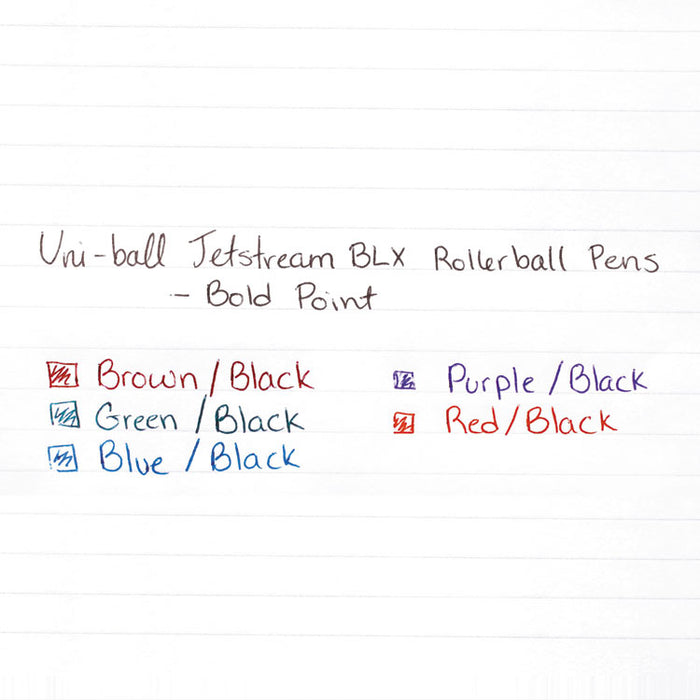 Uni-ball Jetstream BLX Rollerball Pens
- Bold Point
Brown / Black
Green / Black
Blue / Black
Purple / Black
Red / Black